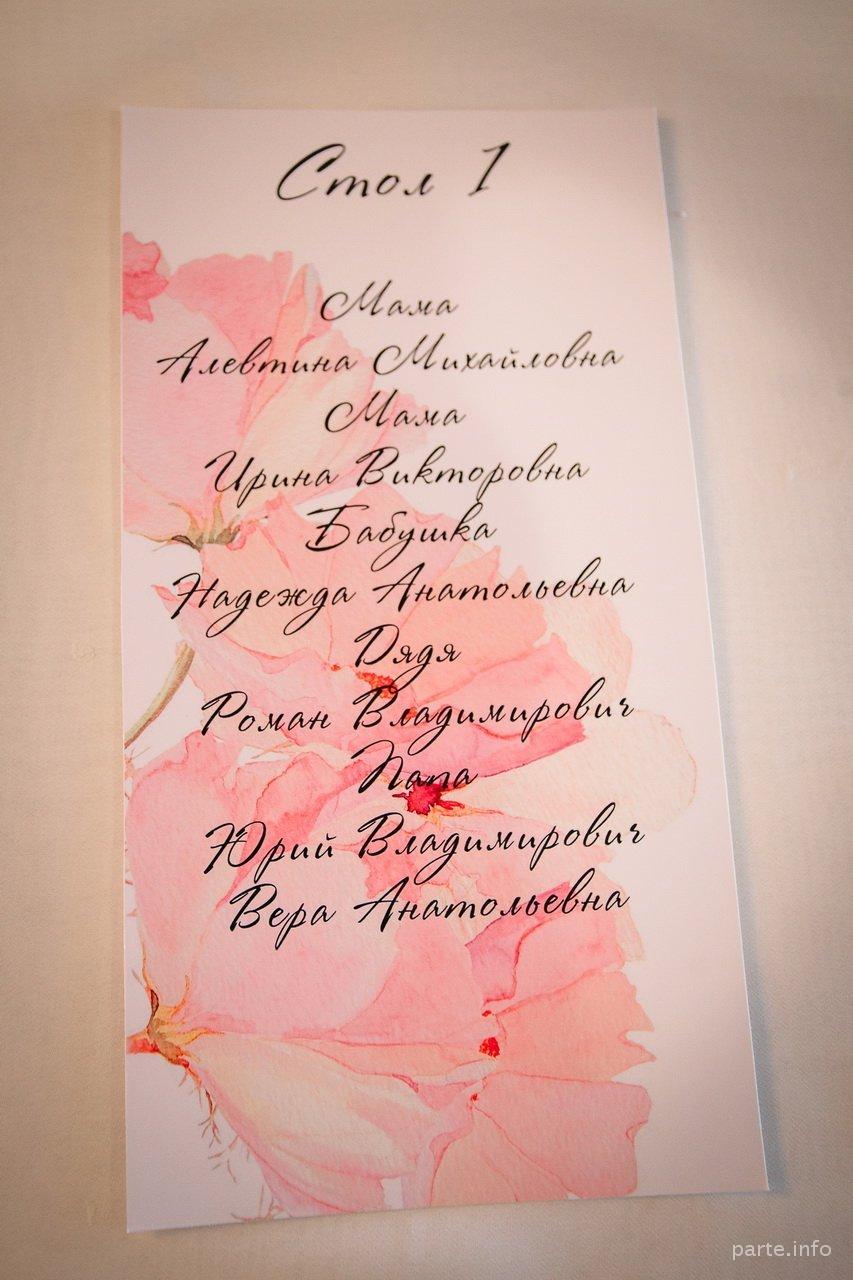 Стол 1
Мама
Алевтина Михайловна
Мама
Ирина Викторовна
Бабушка
Надежда Анатольевна
Дядя
Роман Владимирович
Папа
Юрий Владимирович
Вера Анатольевна
parte.info